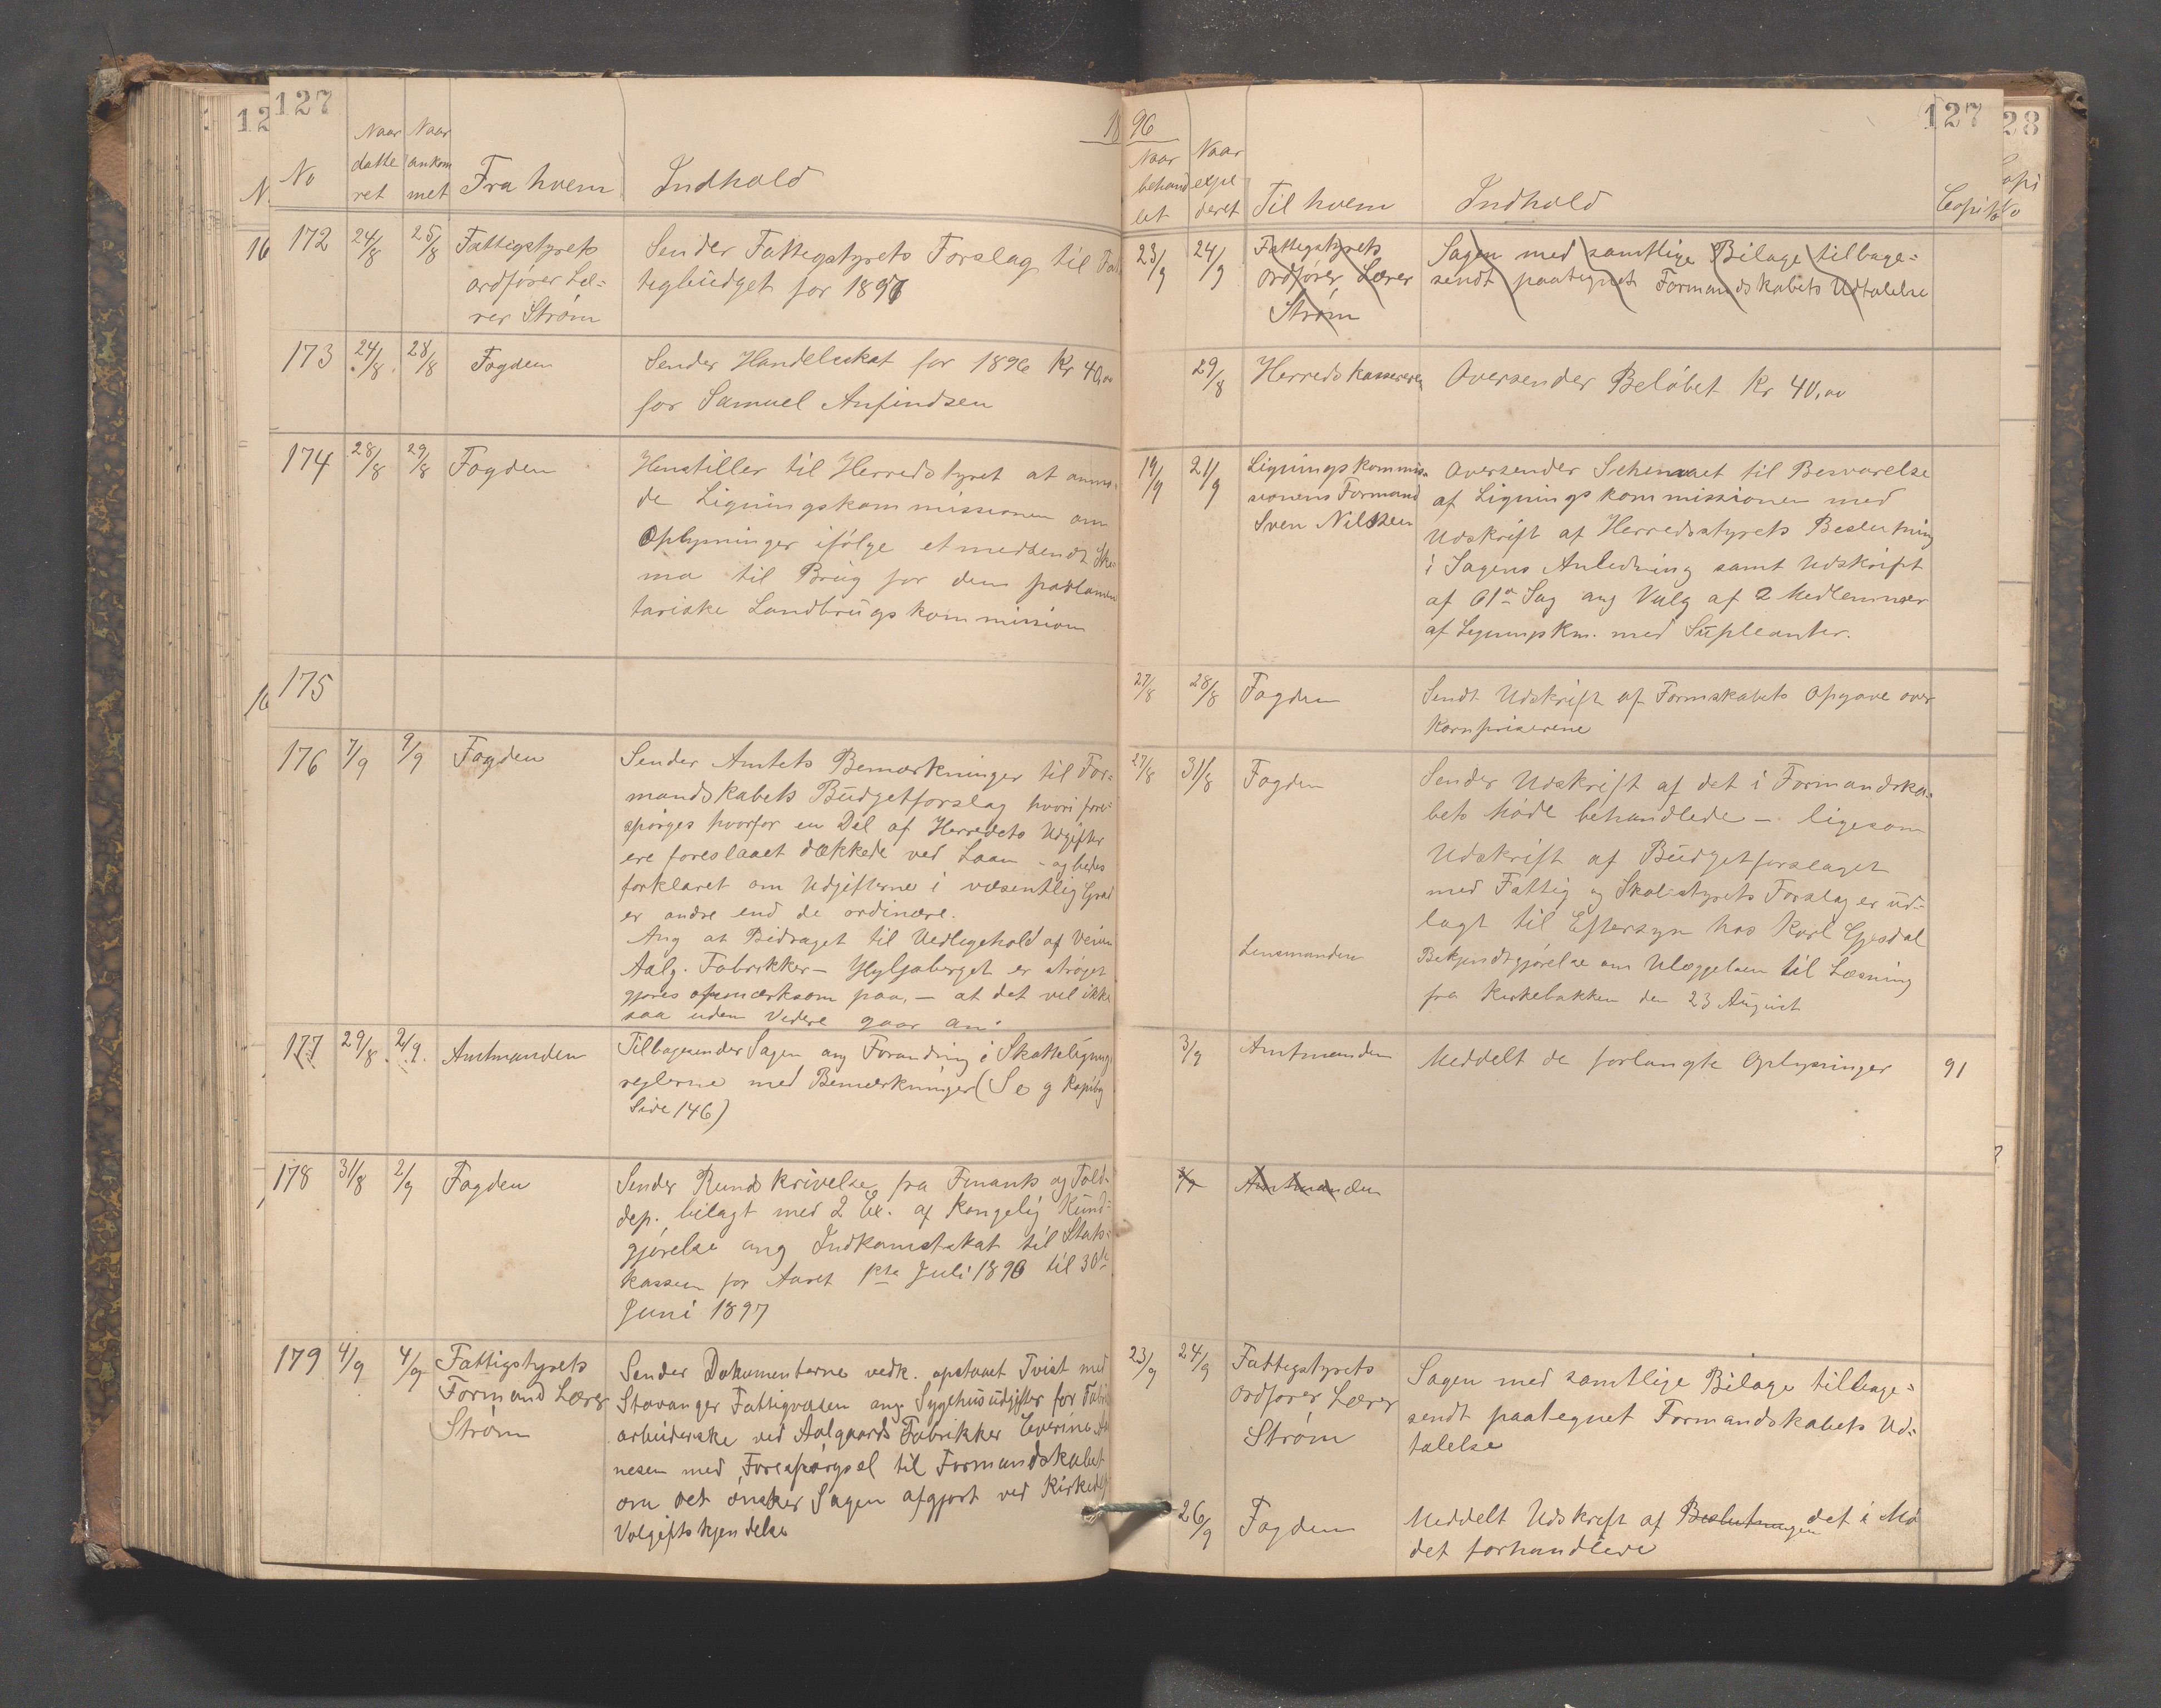 127
No
Naar datteret
Naar ankommet
Fra hvem
Indhold
172 24/8 25/8 Fattigstyrets
ordfører Læ-
rer Strøm
Sender Fattigstyrets Forslag til Fat
tigbudget for 1897
173 24/8 28/8 Fogden
Sender Handelsskat for 1896 Kr 40,00
for Samuel Anfindsen
174 28/8 29/8 Fogden
Henstiller til Herredstyret at anmo-
de Ligningskommissionen om
Oplysninger ifølge et medsendt Ske-
ma til Brug for den parlamen
tariske Landbrugskommission
175
176 7/9 9/9 Fogden
Sender Amtets Bemærkninger til For-
mandskabets Budgetforslag hvori fore-
spørges hvorfor en Del af Herredets Udgifter
ere foreslaaet dækkede ved Laan - og bedes
forklaret om Udgifterne i væsentlig Grad
er andre end de ordinære.
Ang at Bidraget til Vedligehold af Veien
Aalg. Fabrikker - Hyljaberget er strøget
gjøres opmærksom paa, - at det vel ikke
saa uden Videre gaar an.
177 29/8 2/9 Amtmanden
Tilbagesender Sagen ang Forandring i Skattelignings
reglerne med Bemærkninger (Se g Kopibog
Side 146)
178 31/8 2/9 Fogden
Sender Rundskrivelse fra Finants og Told-
dep. bilagt med 2 Ex. af Kongelig Kund-
gjørelse ang Indkomstskat til Stats-
kassen for Aaret 1ste Juli 1896 til 30te
Juni 1897
179 4/9 4/9 Fattigstyrets
Formand Lærer
Strøm
Sender Dokumenterne vedk. opstaaet Tvist med
Stavanger Fattigvæsen ang Sygehusudgifter for Fabrik
arbeiderske ved Aalgaards Fabrikker Everine
nesen med Forespørgsel til Formandskabet
om det ønsker Sagen afgjort ved Kirkedep
Volgiftskjendelse
1896
127
Naar behandlet
Naar expederet
Til hvem
Indhold
Copi No
23/9 24/9 Fattigstyrets
Ordfører Lærer
Strøm
Sagen med samtlige Bilage tilbage-
sendt paategnet Formandskabets Udtalelse
29/8 Herredskassereren
Oversender Beløbet Kr 40,00
19/9 21/9 Ligningskommis-
sionens Formand
Sven Nilssen
Oversender Schemaet til Besvarelse
af Ligningskommissionen med
Udskrift af Herredsstyrets Beslutning
i Sagens Anledning samt Udskrift
af Sag ang Valg af 2 Medlemmer
af Ligningskm. med Supleanter.
27/8 28/8 Fogden
Sendt Udskrift af Formskabets Opgave over
Kornpriserene
27/8 31/8 Fogden
Sender Udskrift af det i Formandska-
bets Møde behandlede - ligesom
Udskrift af Budgetforslaget
med Fattig og Skolestyrets Forslag er ud-
lagt til Eftersyn hos Karl Gjesdal
Lensmanden
Bekjendtgjørelse om Ulæggelsen til Læsning
fra Kirkebakken den 23 August
3/9 Amtmanden
Meddelt de forlangte Oplysninger 91
Amtmanden
23/9 24/9 Fattigstyrets
Ordfører Lærer
Strøm
Sagen med samtlige Bilage tilbage-
sendt paategnet Formandskabets Ud-
talelse
26/9 Fogden
Meddelt Udskrift af Beslutningen det i Mø
det forhandlede
28